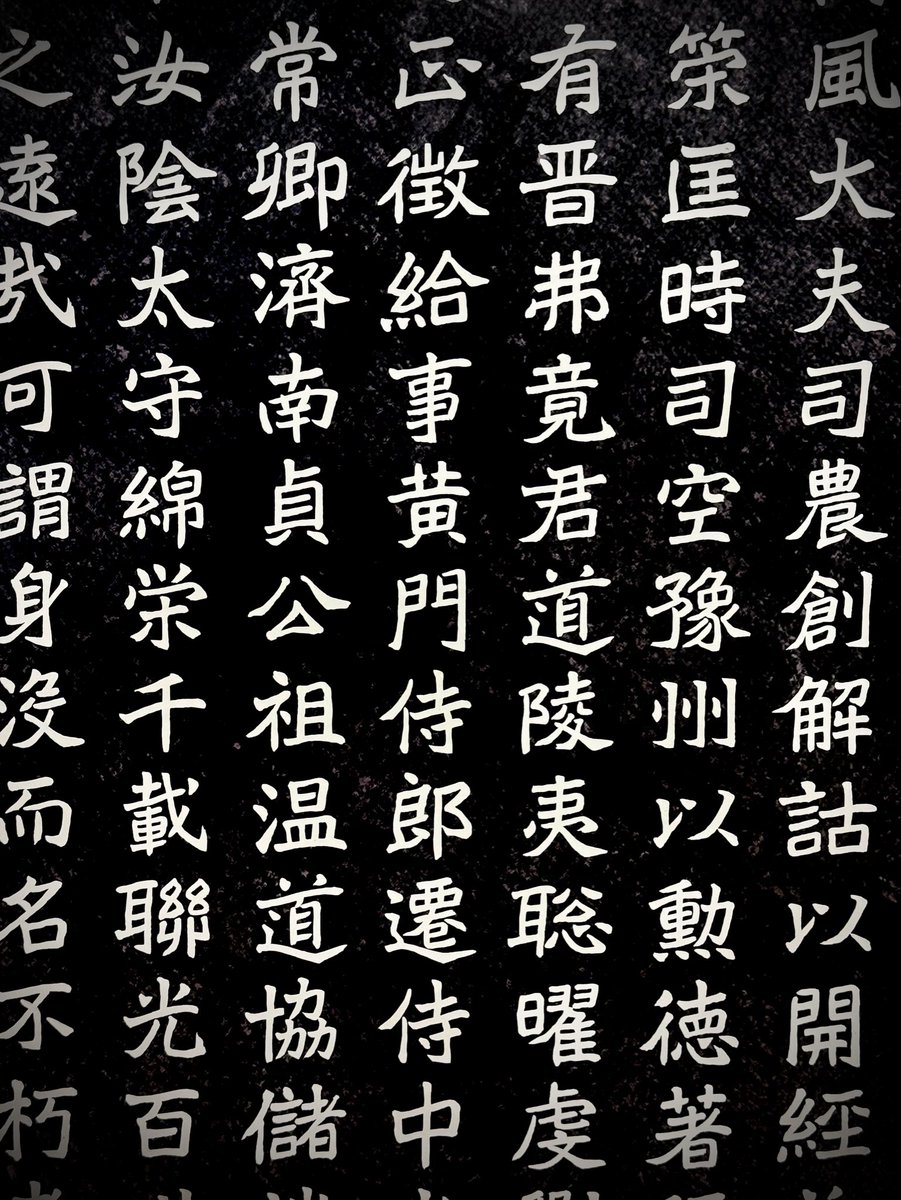 風大夫司農創解詁以開經
策匡時司空豫州以勲徳著
有晋弗竟君道陵夷聡曜虔
正徴給事黄門侍郎遷侍中
常卿濟南貞公祖温道協儲
汝陰太守綿栄千載聯光百
之遠哉可謂身沒而名不朽